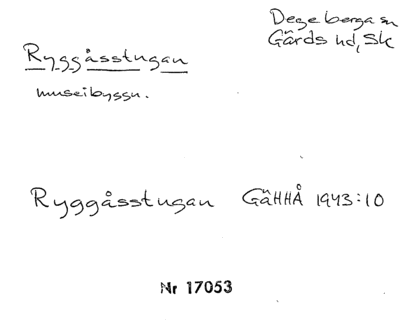 Degeberga sn
Gärds hd, Sk
Ryggåsstugan
museibyggn.
Ryggåsstugan GäHHÅ 1943:10
Nr 17053